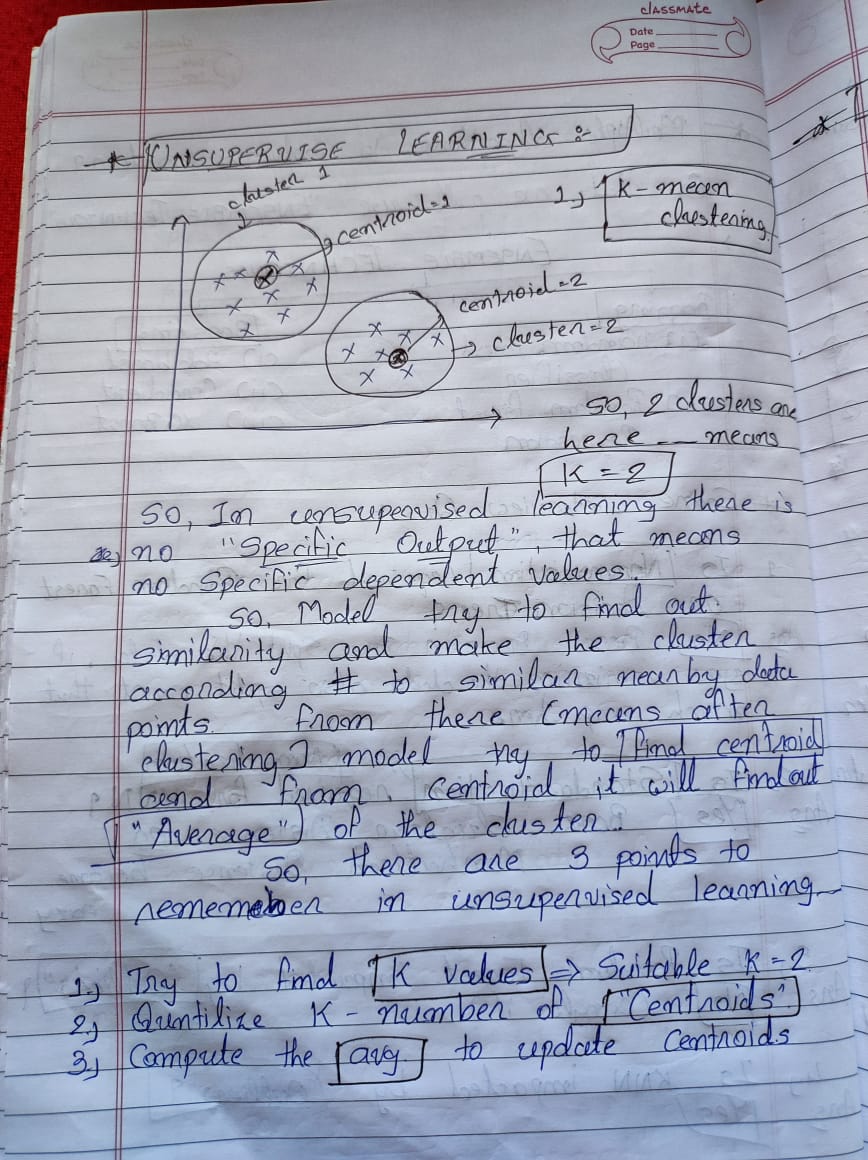 classmate
Date
Page
* UNSUPERVISE LEARNING :-
cluster 1
centroid=1
1.) K-mean
clustering
centroid=2
cluster=2
So, 2 clusters are
here — means
K = 2
So, In unsupervised learning there is
no "Specific Output", that means
no specific dependent values.
So, Model try to find out
similarity and make the cluster
according # to similar nearby data
points. From there (means after
clustering) model try to find centroid
and from centroid it will find out
"Average" of the cluster.
So, there are 3 points to
rememeber in unsupervised learning
1.) Try to find K values => Suitable K = 2
2.) Quntilize K - number of "Centroids"
3.) Compute the avg. to update centroids